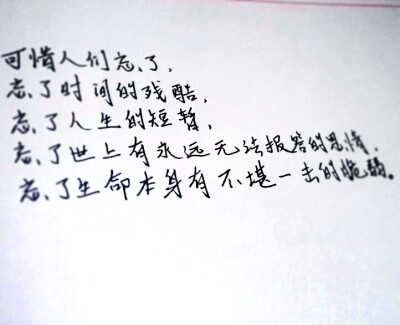 可惜人们忘了,
忘了时间的残酷,
忘了人生的短暂,
忘了世上有永远无法报答的恩情,
忘了生命本身有不堪一击的脆弱。